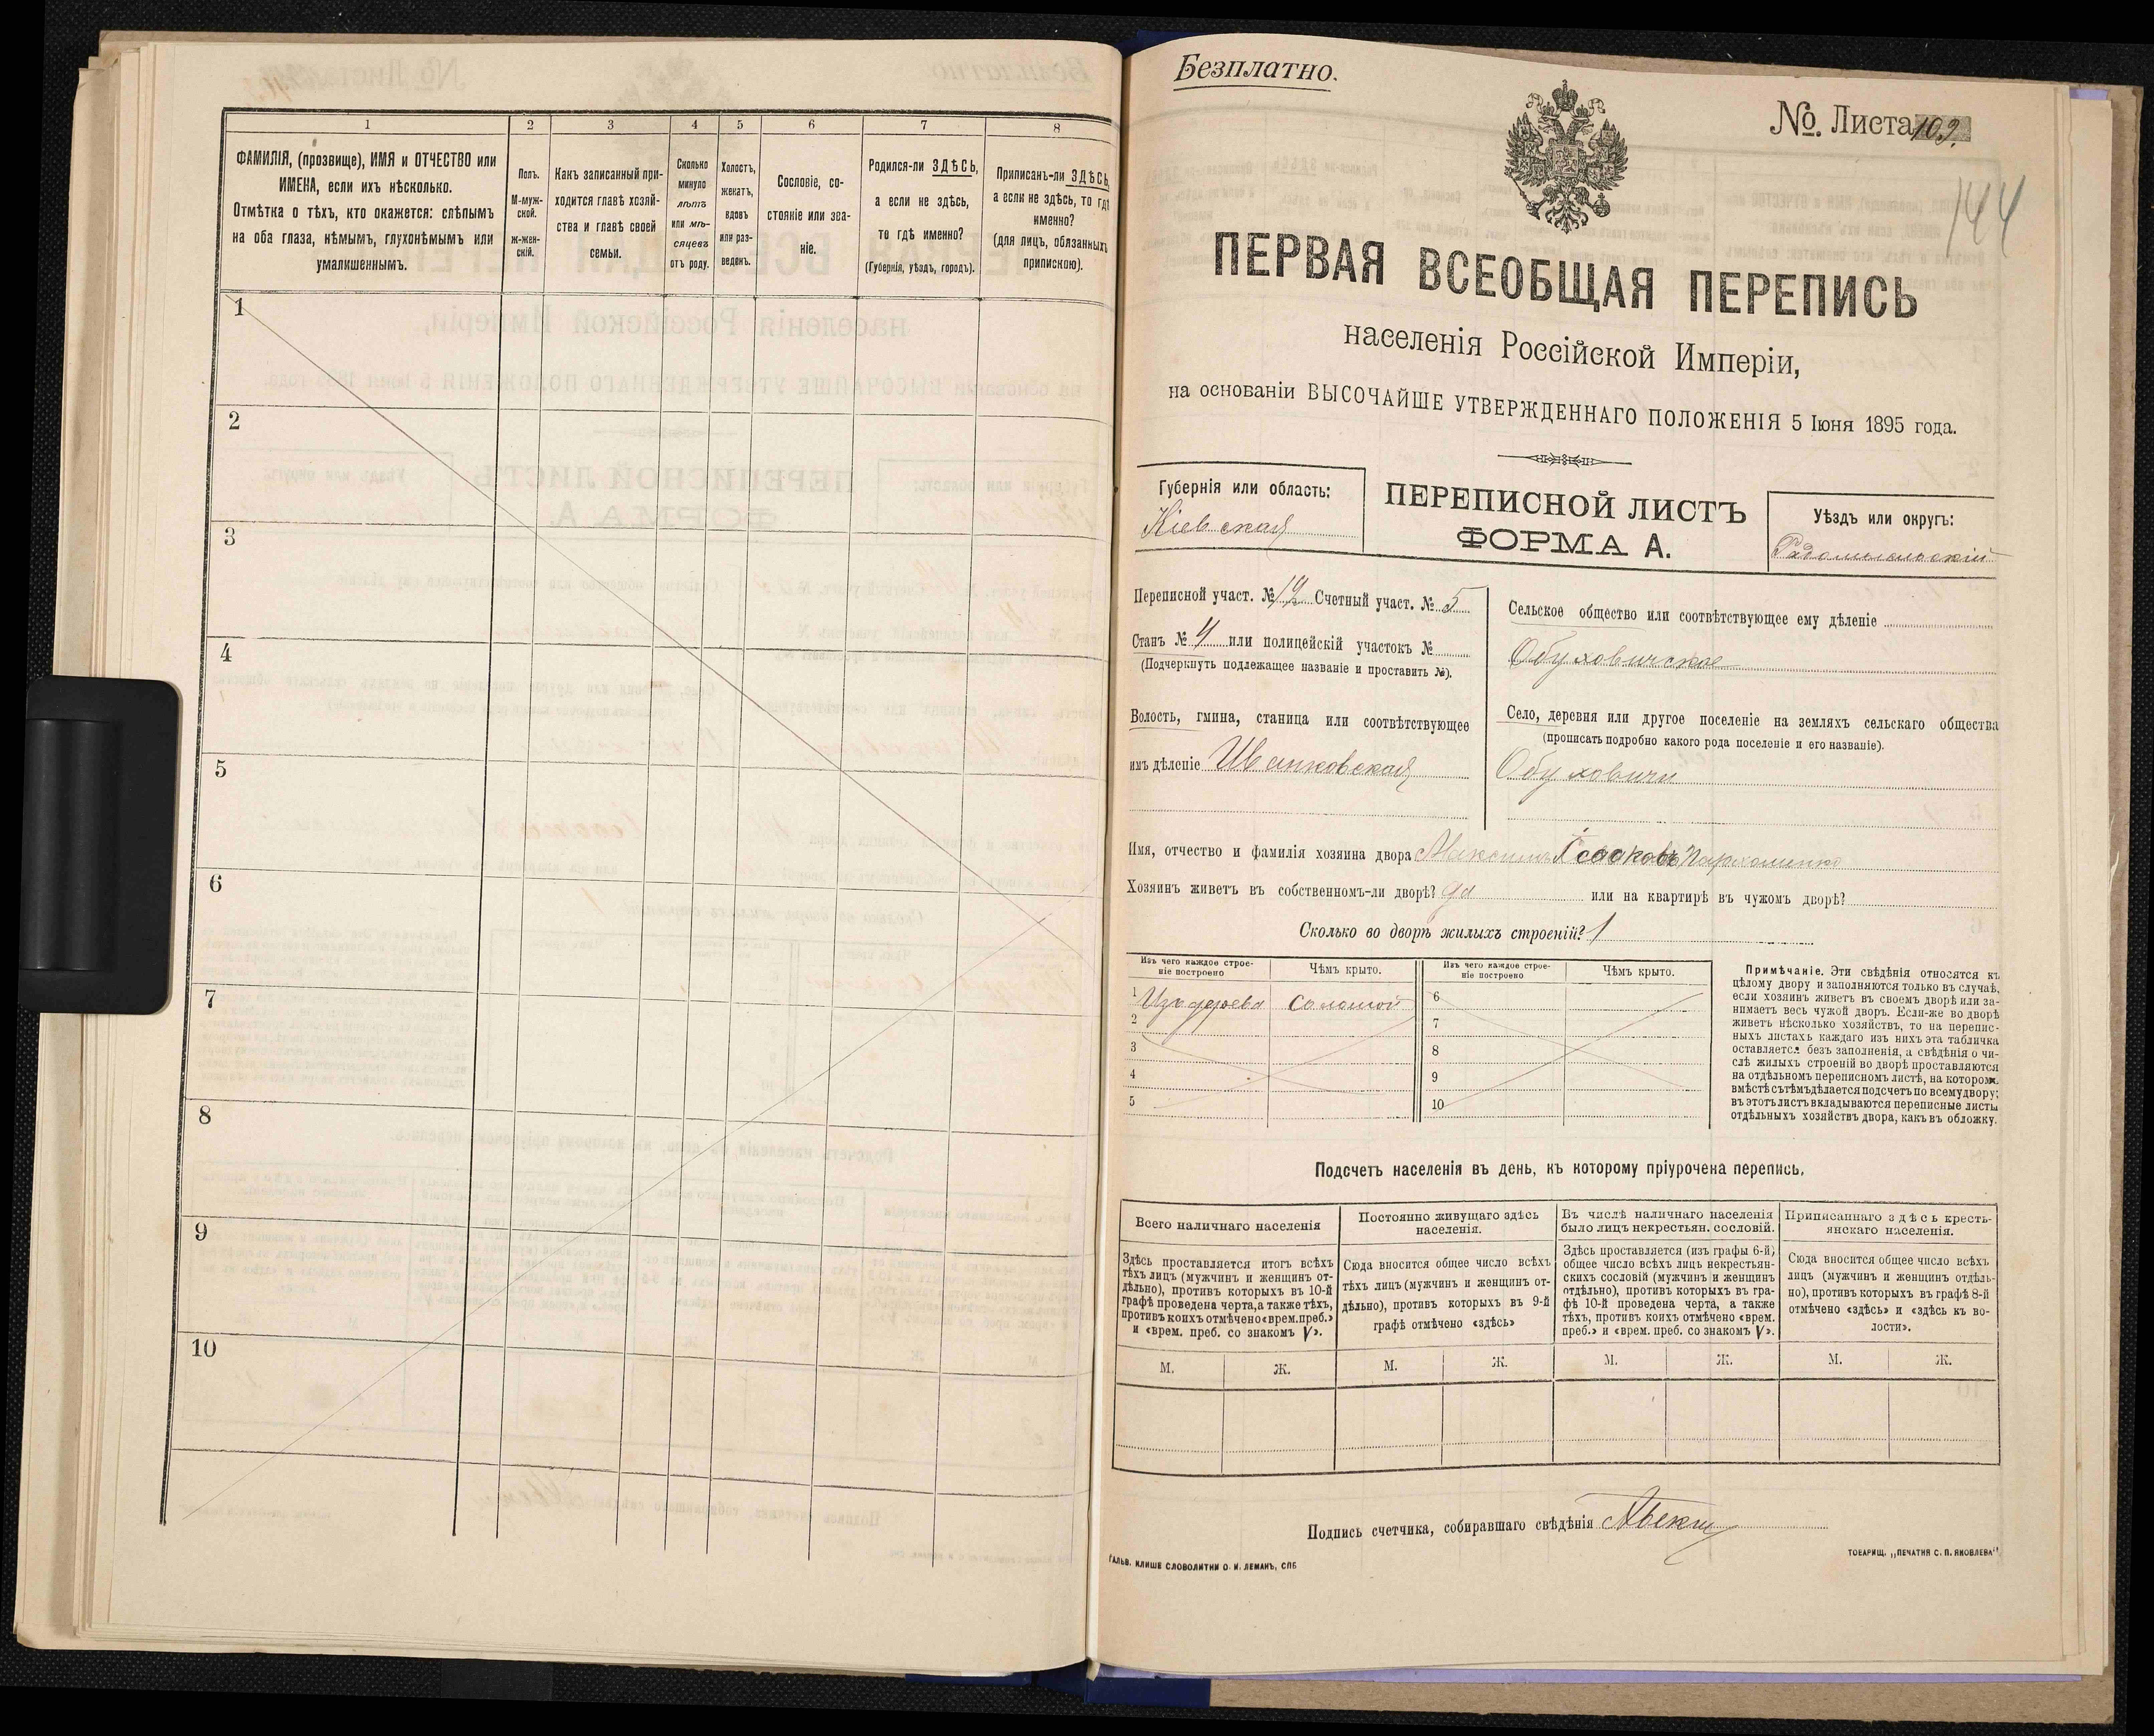 1
2
3
4
5
6
7
8
ФАМИЛІЯ, (прозвище), ИМЯ и ОТЧЕСТВО или
ИМЕНА, если ихъ нѣсколько.
Отмѣтка о тѣхъ, кто окажется: слѣпымъ
на оба глаза, нѣмымъ, глухонѣмымъ или
умалишеннымъ.
Полъ.
М-муж-
ской.
Ж-жен-
скій.
Какъ записанный при-
ходится главѣ хозяй-
ства и главѣ своей
семьи.
Сколько
минуло
лѣтъ
или мѣ-
сяцевъ
отъ роду.
Холостъ,
женатъ,
вдовъ
или раз-
веденъ.
Сословіе, со-
стояніе или зва-
ніе.
Родился-ли ЗДѢСЬ,
а если не здѣсь,
то гдѣ именно?
(Губернія, уѣздъ, городъ).
Приписанъ-ли ЗДѢСЬ,
а если не здѣсь, то гдѣ
именно?
(для лицъ, обязанныхъ
припискою).
1
2
3
4
5
6
7
8
9
10
Безплатно.
№. Листа 109.
144
ПЕРВАЯ ВСЕОБЩАЯ ПЕРЕПИСЬ
населенія Россійской Имперіи,
на основаніи ВЫСОЧАЙШЕ УТВЕРЖДЕННАГО ПОЛОЖЕНІЯ 5 Іюня 1895 года.
Губернія или область:
Кіевская
ПЕРЕПИСНОЙ ЛИСТЪ
ФОРМА А.
Уѣздъ или округъ:
Радомысльскій
Переписной участ. № 19 Счетный участ. № 5
Станъ № 4 или полицейскій участокъ №
(Подчеркнуть подлежащее названіе и проставить №).
Волость, гмина, станица или соотвѣтствующее
имъ дѣленіе Иванковская
Сельское общество или соотвѣтствующее ему дѣленіе
Обуховичское
Село, деревня или другое поселеніе на земляхъ сельскаго общества
(прописать подробно какого рода поселеніе и его названіе).
Обуховичи
Имя, отчество и фамилія хозяина двора Максимъ Пархоменко
Хозяинъ живетъ въ собственномъ-ли дворѣ? да или на квартирѣ въ чужомъ дворѣ?
Сколько во дворѣ жилыхъ строеній? 1
Изъ чего каждое строе-
ніе построено
Чѣмъ крыто.
Изъ чего каждое строе-
ніе построено
Чѣмъ крыто.
1 Изъ дерева Соломой
2
3
4
5
6
7
8
9
10
Примѣчаніе. Эти свѣдѣнія относятся къ
цѣлому двору и заполняются только въ случаѣ,
если хозяинъ живетъ въ своемъ дворѣ или за-
нимаетъ весь чужой дворъ. Если-же во дворѣ
живетъ нѣсколько хозяйствъ, то на перепис-
ныхъ листахъ каждаго изъ нихъ эта табличка
оставляется безъ заполненія, а свѣдѣнія о чи-
слѣ жилыхъ строеній во дворѣ проставляются
на отдѣльномъ переписномъ листѣ, на которомъ
вмѣстѣ съ тѣмъ дѣлается подсчетъ по всему двору;
въ этотъ листъ вкладываются переписные листы
отдѣльныхъ хозяйствъ двора, какъ въ обложку.
Подсчетъ населенія въ день, къ которому пріурочена перепись.
Всего наличнаго населенія
Здѣсь проставляется итогъ всѣхъ
тѣхъ лицъ (мужчинъ и женщинъ от-
дѣльно), противъ которыхъ въ 10-й
графѣ проведена черта, а также тѣхъ,
противъ коихъ отмѣчено «врем. преб.»
и «врем. преб. со знакомъ V».
Постоянно живущаго здѣсь
населенія.
Сюда вносится общее число всѣхъ
тѣхъ лицъ (мужчинъ и женщинъ от-
дѣльно), противъ которыхъ въ 9-й
графѣ отмѣчено «здѣсь»
Въ числѣ наличнаго населенія
было лицъ некрестьян. сословій.
Здѣсь проставляется (изъ графы 6-й)
общее число всѣхъ лицъ некрестьян-
скихъ сословій (мужчинъ и женщинъ
отдѣльно), противъ которыхъ въ гра-
фѣ 10-й проведена черта, а также
тѣхъ, противъ коихъ отмѣчено «врем.
преб.» и «врем. преб. со знакомъ V».
Приписаннаго здѣсь кресть-
янскаго населенія.
Сюда вносится общее число всѣхъ
лицъ (мужчинъ и женщинъ отдѣль-
но), противъ которыхъ въ графѣ 8-й
отмѣчено «здѣсь» и «здѣсь къ во-
лости».
М. Ж. М. Ж. М. Ж. М. Ж.
Подпись счетчика, собиравшаго свѣдѣнія
ГАЛЬВ. КЛИШЕ СЛОВОЛИТНИ О. И. ЛЕМАНЪ, СПБ
ТОВАРИЩ. „ПЕЧАТНЯ С. П. ЯКОВЛЕВА"